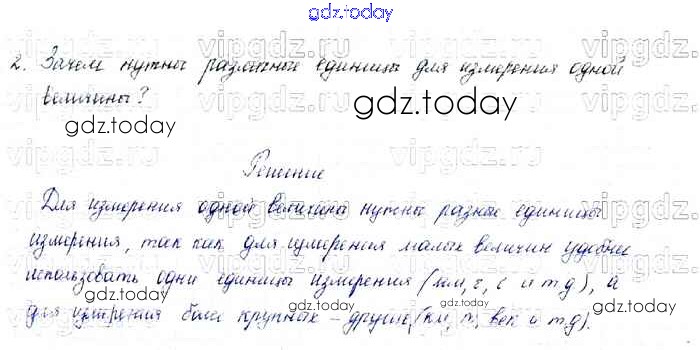 gdz.today
2. Зачем нужны различные единицы для измерения одной
величины?
gdz.today
gdz.today
Решение
Для измерения одной величины нужны разные единицы
измерения, так как для измерения малых величин удобнее
использовать одни единицы измерения (мм, г, с и т д), а
для измерения более крупных – другие (км, т, век и т.д).
gdz.today
gdz.today
gdz.today
vipgdz.ru
vipgdz.ru
vipgdz.ru